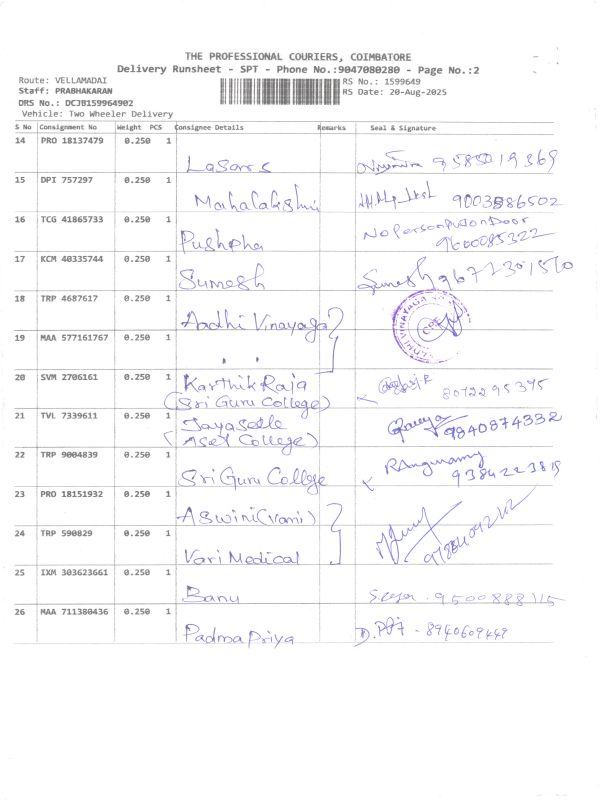 THE PROFESSIONAL COURIERS, COIMBATORE
Delivery Runsheet - SPT - Phone No.:9047080280 - Page No.:2
Route: VELLAMADAI RS No.: 1599649
Staff: PRABHAKARAN RS Date: 20-Aug-2025
DRS No.: DCJB159964902
Vehicle: Two Wheeler Delivery
S No Consignment No Weight PCS Consignee Details Remarks Seal & Signature
14 PRO 18137479 0.250 1
Lasarrs 9585019369
15 DPI 757297 0.250 1
Mahalakshmi 9003586502
16 TCG 41865733 0.250 1
Pushpha No Person Put on Door
9600085322
17 KCM 40335744 0.250 1
Sumesh Sumesh 9677301570
18 TRP 4687617 0.250 1
Aadhi Vinayaga
19 MAA 577161767 0.250 1
" "
20 SVM 2706161 0.250 1 Karthik Raja
(Sri Guru College) 8072295375
21 TVL 7339611 0.250 1 Jayaseele
(Aset College) 9840874332
22 TRP 9004839 0.250 1
Sri Guru College 9384223819
23 PRO 18151932 0.250 1
Aswini (Vani)
24 TRP 590829 0.250 1
Vari Medical
25 IXM 303623661 0.250 1
Banu 9500888115
26 MAA 711380436 0.250 1
Padma Priya 8940609449